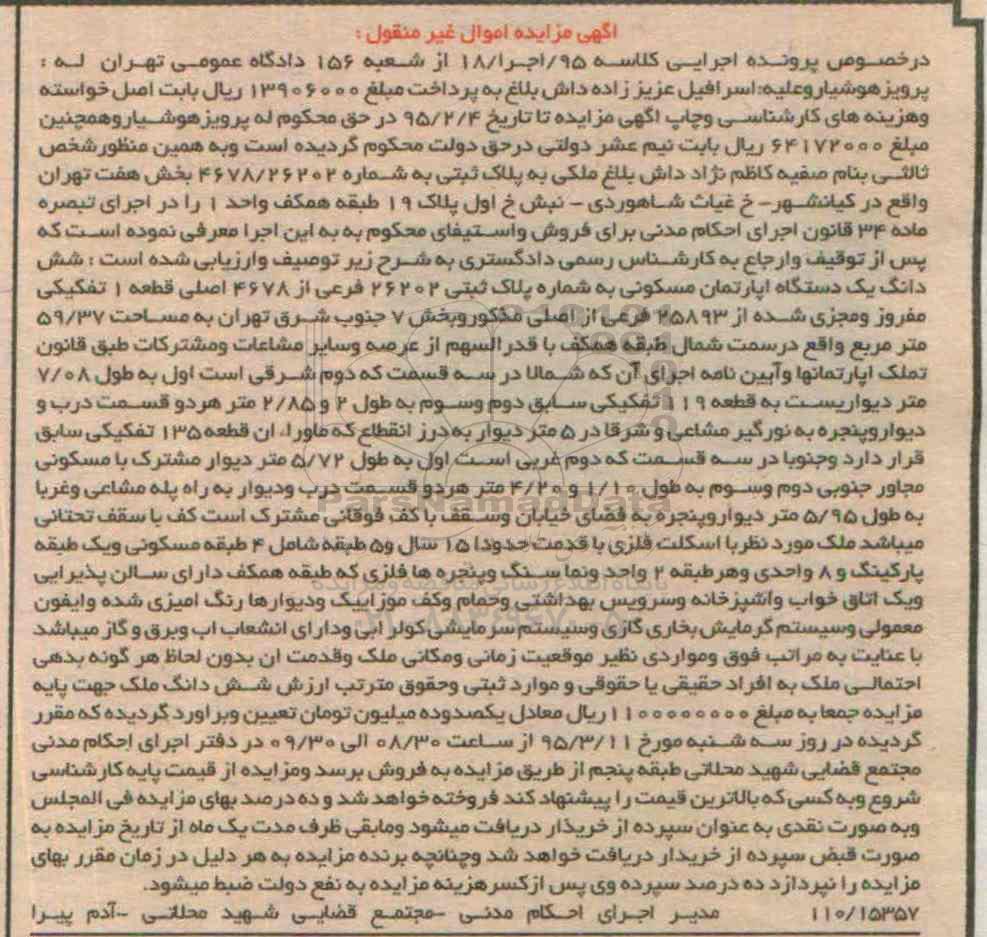 آگهی مزایده اموال غیر منقول :
درخصوص پرونده اجرایی کلاسه ۹۵/اجرا/۱۸ از شعبه ۱۵۶ دادگاه عمومی تهران له :
پرویز هوشیاروعلیه:اسرافیل عزیز زاده داش بلاغ به پرداخت مبلغ ۱۳۹۰۶۰۰۰ ریال بابت اصل خواسته
وهزینه های کارشناسی وچاپ آگهی مزایده تا تاریخ ۹۵/۲/۴ در حق محکوم له پرویز هوشیاروهمچنین
مبلغ ۶۴۱۷۲۰۰۰ ریال بابت نیم عشر دولتی درحق دولت محکوم گردیده است وبه همین منظورشخص
ثالثی بنام صفیه کاظم نژاد داش بلاغ ملکی به پلاک ثبتی به شماره ۴۶۷۸/۲۶۲۰۲ بخش هفت تهران
واقع در کیانشهر- خ غیاث شاهوردی - نبش خ اول پلاک ۱۹ طبقه همکف واحد ۱ را در اجرای تبصره
ماده ۳۴ قانون اجرای احکام مدنی برای فروش واستیفای محکوم به به این اجرا معرفی نموده است که
پس از توقیف وارجاع به کارشناس رسمی دادگستری به شرح زیر توصیف وارزیابی شده است : شش
دانگ یک دستگاه آپارتمان مسکونی به شماره پلاک ثبتی ۲۶۲۰۲ فرعی از ۴۶۷۸ اصلی قطعه ۱ تفکیکی
مفروز ومجزی شده از ۲۵۸۹۳ فرعی از اصلی مذکوروبخش ۷ جنوب شرق تهران به مساحت ۵۹/۳۷
متر مربع واقع درسمت شمال طبقه همکف با قدرالسهم از عرصه وسایر مشاعات ومشترکات طبق قانون
تملک آپارتمانها وآیین نامه اجرای آن که شمالا در سه قسمت که دوم شرقی است اول به طول ۷/۰۸
متر دیواریست به قطعه ۱۱۹ تفکیکی سابق دوم وسوم به طول ۲ و ۲/۸۵ متر هردو قسمت درب و
دیواروپنجره به نورگیر مشاعی و شرقا در ۵ متر دیوار به درز انقطاع که ماوراء آن قطعه ۱۳۵ تفکیکی سابق
قرار دارد وجنوبا در سه قسمت که دوم غربی است اول به طول ۵/۷۲ متر دیوار مشترک با مسکونی
مجاور جنوبی دوم وسوم به طول ۱/۱۰ و ۴/۲۰ متر هردو قسمت درب ودیوار به راه پله مشاعی وغربا
به طول ۵/۹۵ متر دیواروپنجره به فضای خیابان وسقف با کف فوقانی مشترک است کف با سقف تحتانی
میباشد ملک مورد نظر با اسکلت فلزی با قدمت حدودا ۱۵ سال و۵ طبقه شامل ۴ طبقه مسکونی ویک طبقه
پارکینگ و ۸ واحدی وهرطبقه ۲ واحد ونما سنگ وپنجره ها فلزی که طبقه همکف دارای سالن پذیرایی
ویک اتاق خواب وآشپزخانه وسرویس بهداشتی وحمام وکف موزاییک ودیوارها رنگ آمیزی شده وآیفون
معمولی وسیستم گرمایش بخاری گازی وسیستم سرمایشی کولر آبی ودارای انشعاب آب وبرق و گاز میباشد
با عنایت به مراتب فوق ومواردی نظیر موقعیت زمانی ومکانی ملک وقدمت آن بدون لحاظ هر گونه بدهی
احتمالی ملک به افراد حقیقی یا حقوقی و موارد ثبتی وحقوق مترتب ارزش شش دانگ ملک جهت پایه
مزایده جمعا به مبلغ ۱۱۰۰۰۰۰۰۰۰ ریال معادل یکصدوده میلیون تومان تعیین وبرآورد گردیده که مقرر
گردیده در روز سه شنبه مورخ ۹۵/۳/۱۱ از ساعت ۰۸/۳۰ الی ۰۹/۳۰ در دفتر اجرای احکام مدنی
مجتمع قضایی شهید محلاتی طبقه پنجم از طریق مزایده به فروش برسد ومزایده از قیمت پایه کارشناسی
شروع وبه کسی که بالاترین قیمت را پیشنهاد کند فروخته خواهد شد و ده درصد بهای مزایده فی المجلس
وبه صورت نقدی به عنوان سپرده از خریدار دریافت میشود ومابقی ظرف مدت یک ماه از تاریخ مزایده به
صورت قبض سپرده از خریدار دریافت خواهد شد وچنانچه برنده مزایده به هر دلیل در زمان مقرر بهای
مزایده را نپردازد ده درصد سپرده وی پس ازکسرهزینه مزایده به نفع دولت ضبط میشود.
۱۱۰/۱۵۳۵۷ مدیر اجرای احکام مدنی -مجتمع قضایی شهید محلاتی -آدم پیرا
ParsNamadData